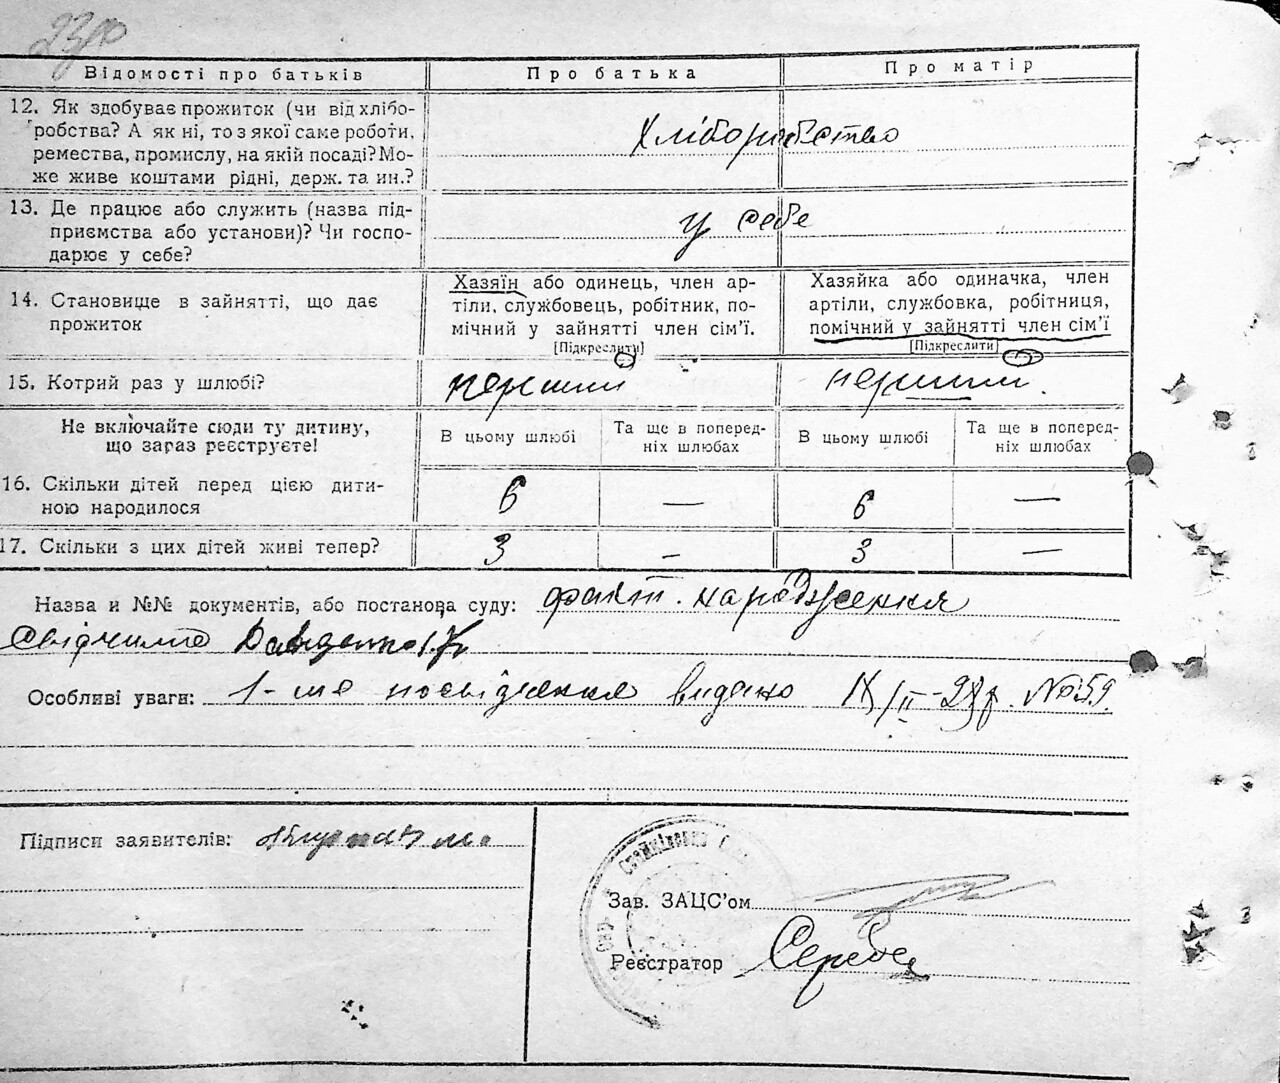 Відомості про батьків
Про батька
Про матір
12. Як здобуває прожиток (чи від хлібо-
робства? А як ні, то з якої саме роботи,
ремества, промислу, на якій посаді? Мо-
же живе коштами рідні, держ. та ин.?
Хліборобство
13. Де працює або служить (назва під-
приємства або установи)? Чи госпо-
дарює у себе?
у себе
14. Становище в зайнятті, що дає
прожиток
Хазяїн або одинець, член ар-
тіли, службовець, робітник, по-
мічний у зайнятті член сім'ї.
[Підкреслити]
Хазяйка або одиначка, член
артіли, службовка, робітниця,
помічний у зайнятті член сім'ї
[Підкреслити]
15. Котрий раз у шлюбі?
перший
перший
Не включайте сюди ту дитину,
що зараз реєструєте!
В цьому шлюбі
Та ще в поперед-
ніх шлюбах
В цьому шлюбі
Та ще в поперед-
ніх шлюбах
16. Скільки дітей перед цією дити-
ною народилося
6
—
6
—
17. Скільки з цих дітей живі тепер?
3
—
3
—
Назва й №№ документів, або постанова суду: факт. народження
Особливі уваги: 1-ше посвідчення видано №59.
Підписи заявителів:
Зав. ЗАЦС'ом
Реєстратор